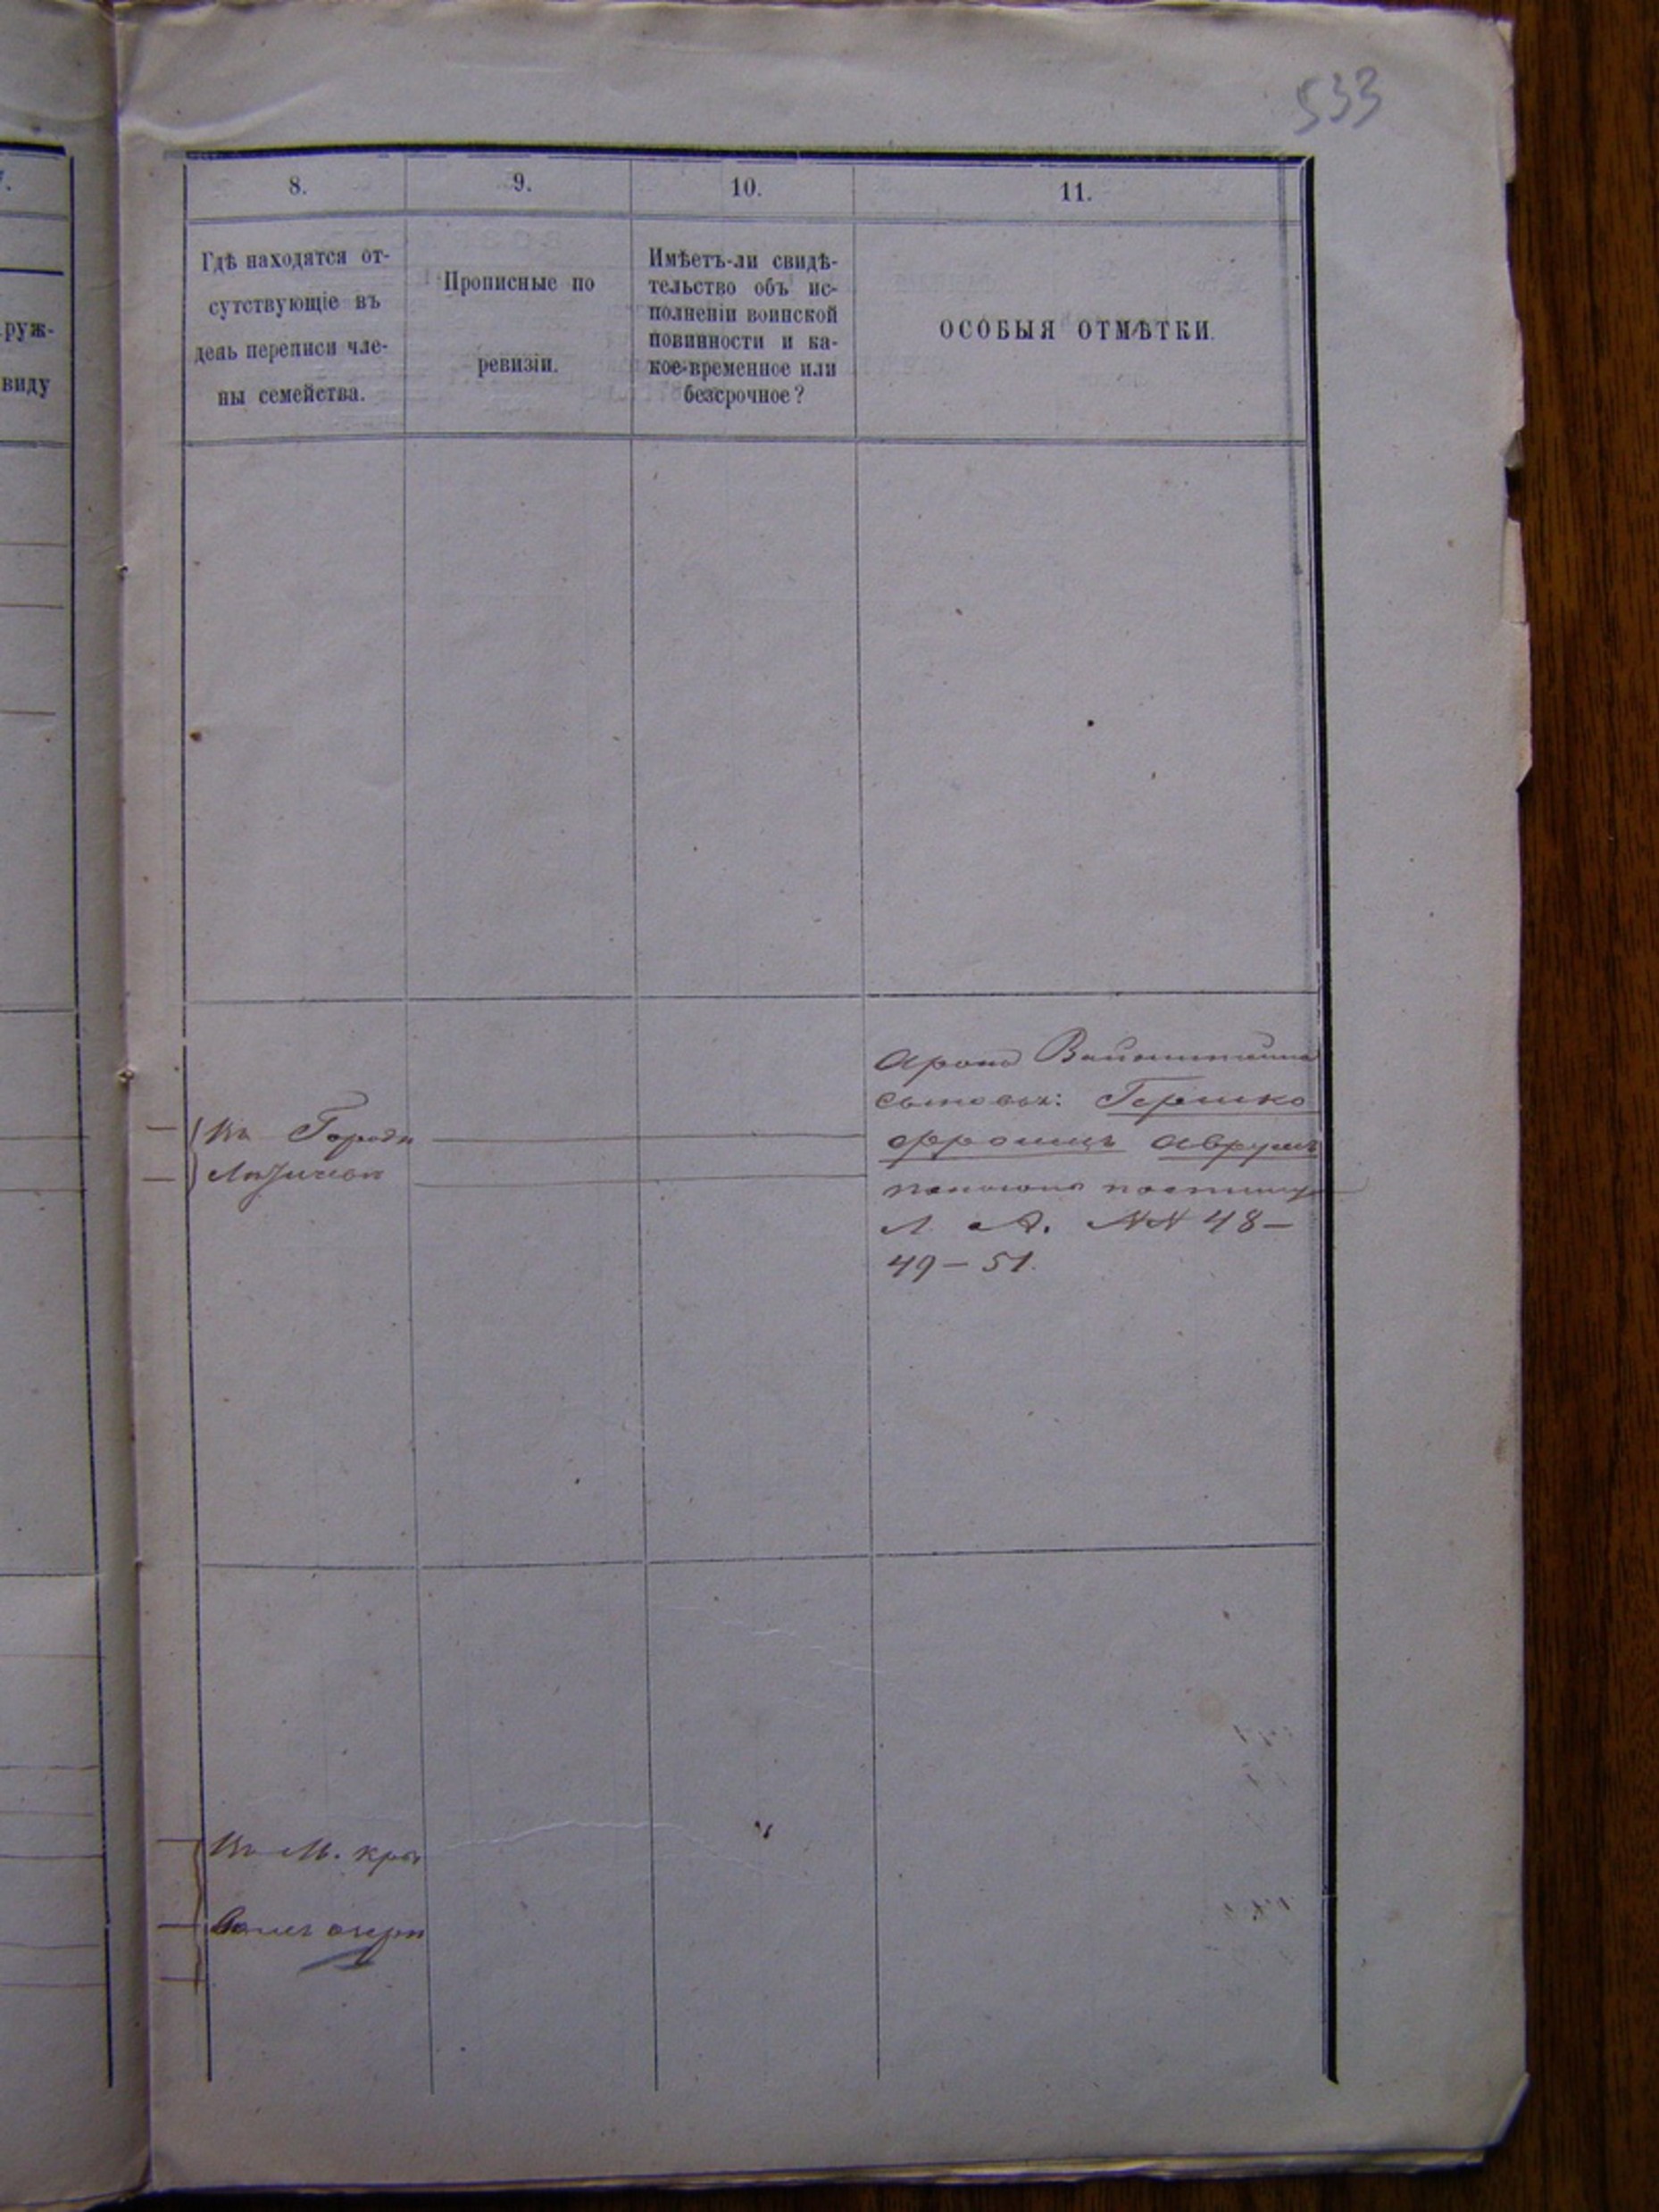 533
7.
руж-
виду
8.
9.
10.
11.
Гдѣ находятся от-
сутствующіе въ
день переписи чле-
ны семейства.
Прописные по
ревизіи.
Имѣетъ-ли свидѣ-
тельство объ ис-
полненіи воинской
повинности и ка-
кое-временное или
безсрочное?
ОСОБЫЯ ОТМѢТКИ.
Арона Вайнштейна
сыновья: Гершко
Аврумъ
Л. А. NN 48–
49 – 51.
Въ Городѣ
Въ М.